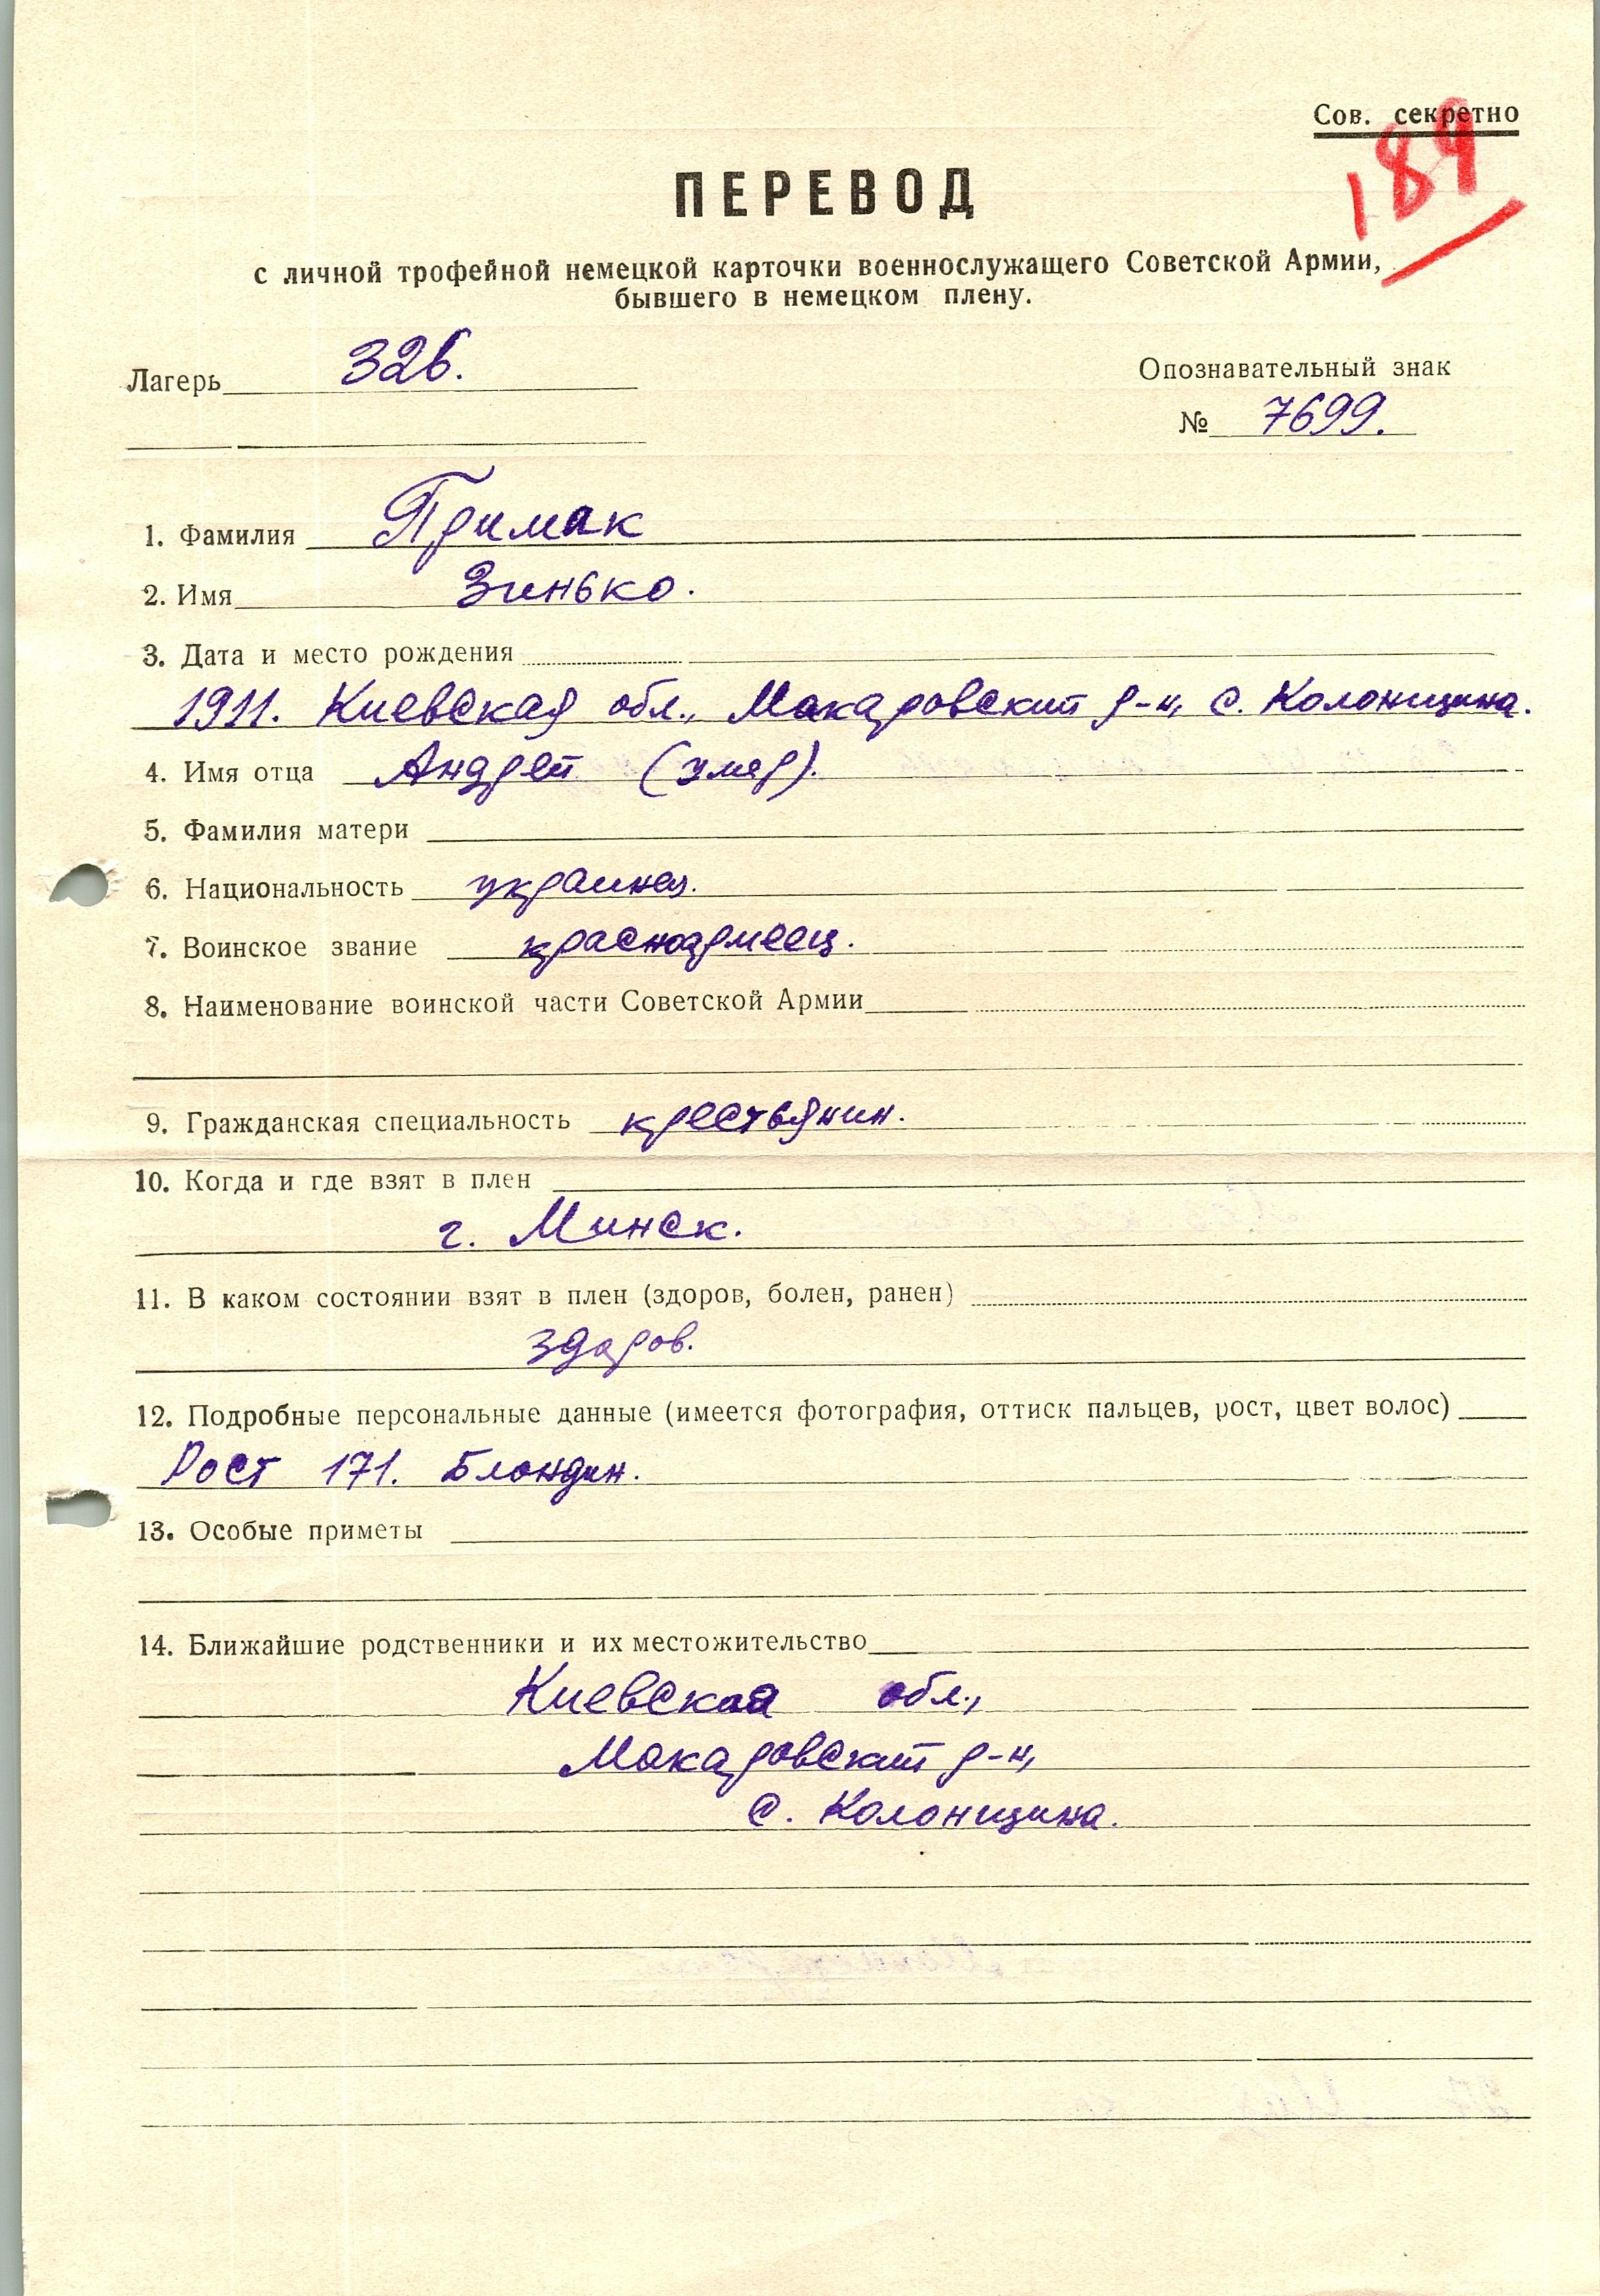 Сов. секретно
189
ПЕРЕВОД
с личной трофейной немецкой карточки военнослужащего Советской Армии,
бывшего в немецком плену.
Лагерь 326.
Опознавательный знак
№ 7699.
1. Фамилия Примак
2. Имя Зинько.
3. Дата и место рождения
1911. Киевская обл., Макаровский р-н, с. Колонщина.
4. Имя отца Андрей (умер).
5. Фамилия матери
6. Национальность украинец.
7. Воинское звание красноармеец.
8. Наименование воинской части Советской Армии
9. Гражданская специальность крестьянин.
10. Когда и где взят в плен
г. Минск.
11. В каком состоянии взят в плен (здоров, болен, ранен)
здоров.
12. Подробные персональные данные (имеется фотография, оттиск пальцев, рост, цвет волос)
Рост 171. Блондин.
13. Особые приметы
14. Ближайшие родственники и их местожительство
Киевская обл.,
Макаровский р-н,
с. Колонщина.